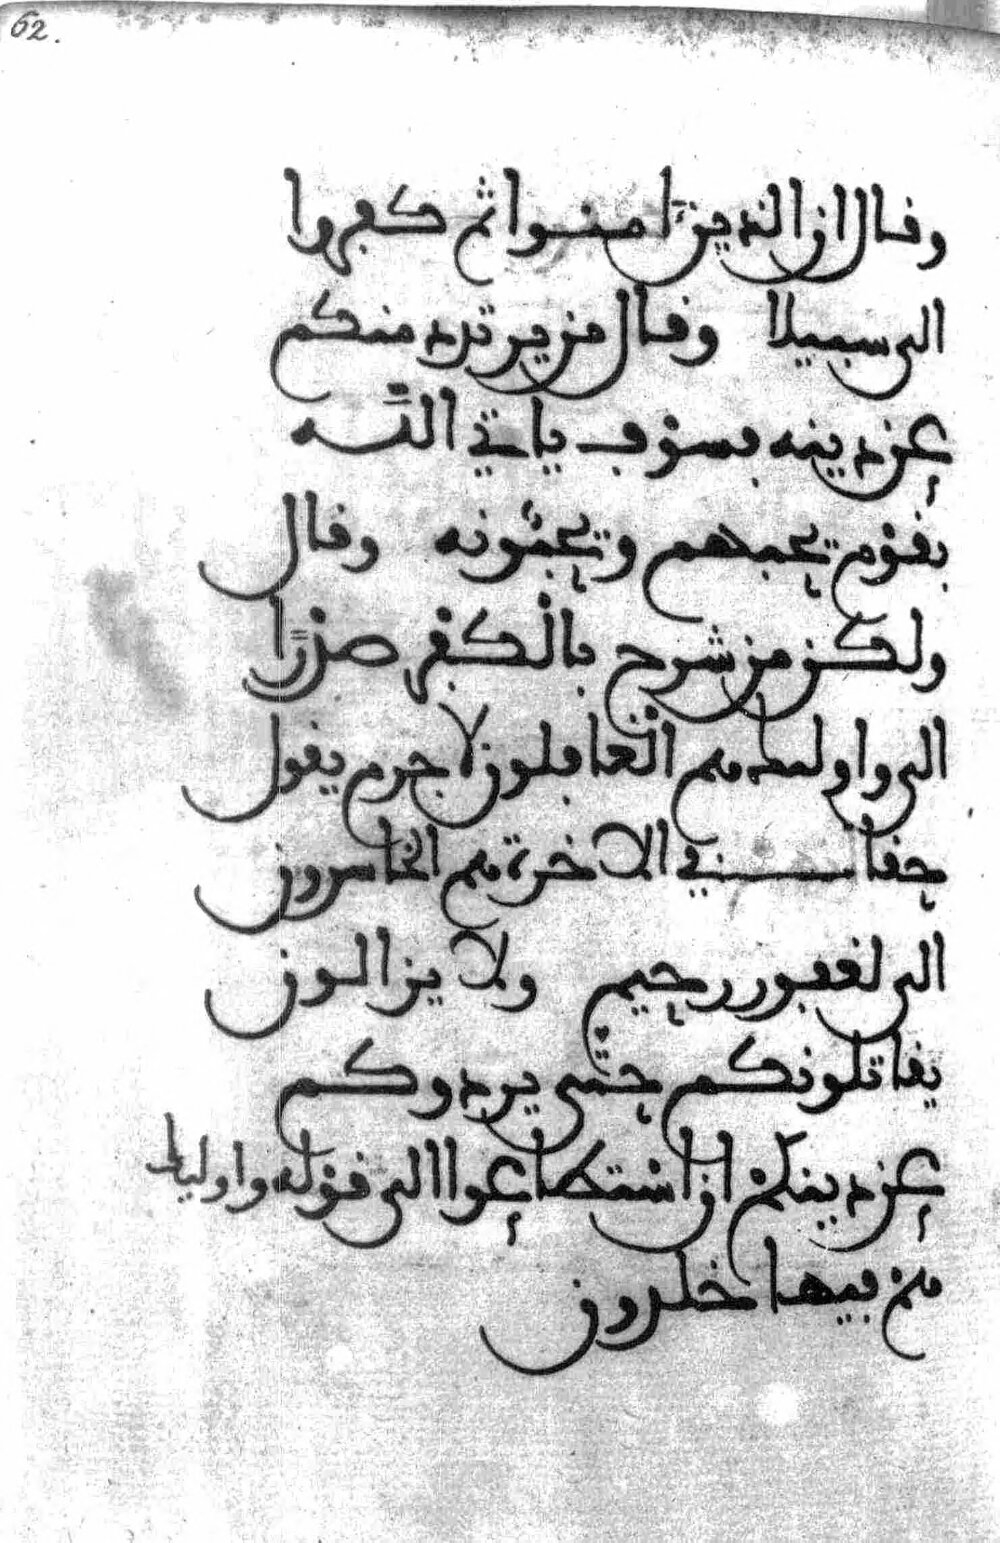 62.
وقال ان الذين امنوا ثم كفروا
الى سبيلا وقال من يرتدد منكم
عن دينه فسوف ياتي الله
بقوم يحبهم ويحبونه وقال
ولكن من شرح بالكفر صدرا
الى واوليك هم الغافلون لا جرم يقول
حقا في الاخرة هم الخاسرون
الى لغفور رحيم ولا يزالون
يقاتلونكم حتى يردوكم
عن دينكم ان استطاعوا الى قوله واوليك
هم فيها خلدون